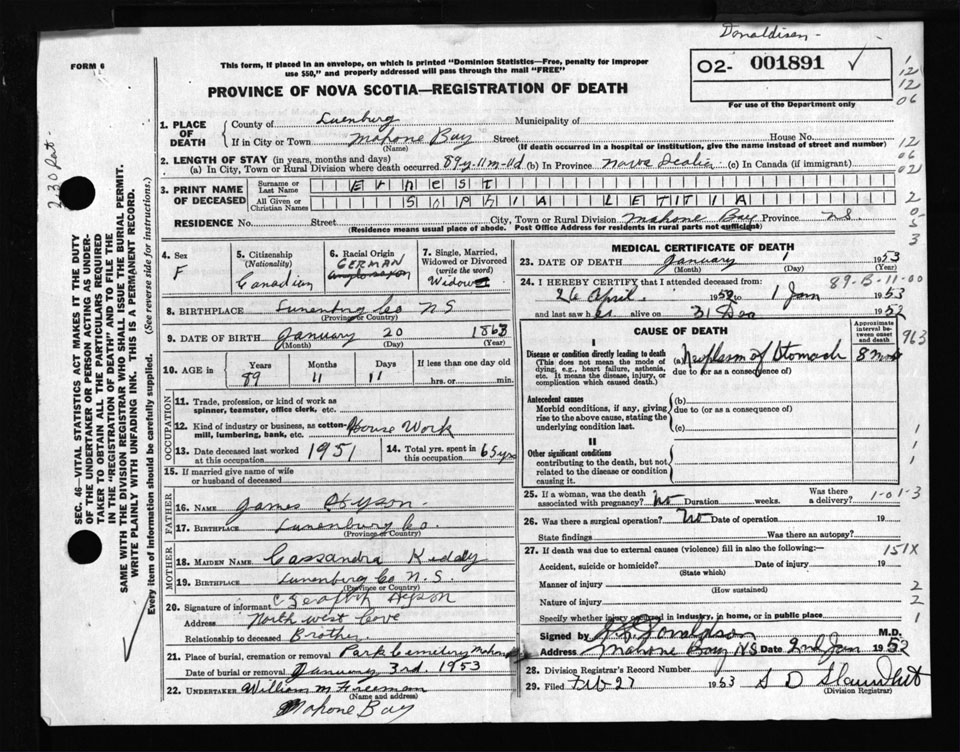 Donaldson
FORM 6
This form, if placed in an envelope, on which is printed "Dominion Statistics—Free, penalty for improper
use $50," and properly addressed will pass through the mail "FREE"
O2- 001891
For use of the Department only
PROVINCE OF NOVA SCOTIA—REGISTRATION OF DEATH
1
12
12
06
12
06
021
2
0
5
3
1. PLACE OF DEATH
County of Lunenburg Municipality of
If in City or Town Mahone Bay Street House No.
(Name) (If death occurred in a hospital or institution, give the name instead of street and number)
2. LENGTH OF STAY (in years, months and days)
(a) In City, Town or Rural Division where death occurred 89y-11m-11d (b) In Province Nova Scotia (c) In Canada (if immigrant)
3. PRINT NAME OF DECEASED
Surname or Last Name Ernest
All Given or Christian Names SOPHIA LETITIA
RESIDENCE No. Street City, Town or Rural Division Mahone Bay Province NS
(Residence means usual place of abode. Post Office Address for residents in rural parts not sufficient)
4. Sex
F
5. Citizenship
(Nationality)
Canadian
6. Racial Origin
GERMAN
7. Single, Married,
Widowed or Divorced
(write the word)
Widow
8. BIRTHPLACE Lunenburg Co N.S.
(Province or Country)
9. DATE OF BIRTH January 20 1863
(Month) (Day) (Year)
10. AGE in Years Months Days If less than one day old
89 11 11 hrs. or min.
OCCUPATION
11. Trade, profession, or kind of work as
spinner, teamster, office clerk, etc.
12. Kind of industry or business, as cotton-
mill, lumbering, bank, etc. House Work
13. Date deceased last worked
at this occupation 1951
14. Total yrs. spent in
this occupation 65 yrs
15. If married give name of wife
or husband of deceased
FATHER
16. Name James Hyson
17. Birthplace Lunenburg Co
(Province or Country)
MOTHER
18. MAIDEN NAME Cassandra Kiddy
19. BIRTHPLACE Lunenburg Co N.S.
(Province or Country)
20. Signature of informant Hyson
Address North west Cove
Relationship to deceased Brother
21. Place of burial, cremation or removal Park Cemetery Mahone
Date of burial or removal January 3rd 1953
22. UNDERTAKER William M Freeman
(Name and address)
Mahone Bay
MEDICAL CERTIFICATE OF DEATH
23. DATE OF DEATH January 1 1953
(Month) (Day) (Year)
24. I HEREBY CERTIFY that I attended deceased from: 89-B-11-00
26 April 1952 to 1 Jan 1953
and last saw her alive on 31 Dec 1952
CAUSE OF DEATH
Approximate interval between onset and death
963
I
Disease or condition directly leading to death
(This does not mean the mode of
dying, e.g., heart failure, asthenia,
etc. It means the disease, injury, or
complication which caused death.)
(a) Neoplasm of Stomach 8 mos
due to (or as a consequence of)
Antecedent causes
Morbid conditions, if any, giving
rise to the above cause, stating the
underlying condition last.
(b)
due to (or as a consequence of)
(c)
II
Other significant conditions
contributing to the death, but not
related to the disease or condition
causing it.
1
1
1
25. If a woman, was the death
associated with pregnancy? No Duration weeks. Was there
a delivery? 1-01-3
26. Was there a surgical operation? No Date of operation 19
State findings Was there an autopsy?
27. If death was due to external causes (violence) fill in also the following:— 151X
Accident, suicide or homicide? Date of injury 19
(State which)
Manner of injury 2
(How sustained)
Nature of injury 2
Specify whether injury occurred in industry, in home, or in public place 1
Signed by Donaldson M.D.
Address Mahone Bay N.S. Date 2nd Jan 1952
28. Division Registrar's Record Number
29. Filed Feb 27 1953 S D
(Division Registrar)
SEC. 46—VITAL STATISTICS ACT MAKES IT THE DUTY
OF THE UNDERTAKER OR PERSON ACTING AS UNDER-
TAKER TO OBTAIN ALL THE PARTICULARS REQUIRED
IN THE "REGISTRATION OF DEATH" AND TO FILE THE
SAME WITH THE DIVISION REGISTRAR WHO SHALL ISSUE THE BURIAL PERMIT.
WRITE PLAINLY WITH UNFADING INK. THIS IS A PERMANENT RECORD.
Every item of information should be carefully supplied. (See reverse side for instructions.)